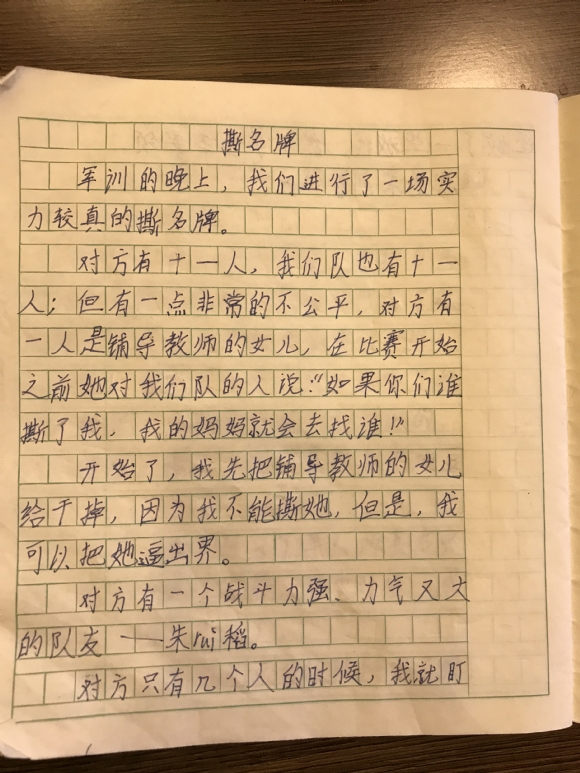 撕名牌
军训的晚上，我们进行了一场实
力较真的撕名牌。
对方有十一人，我们队也有十一
人；但有一点非常的不公平，对方有
一人是辅导教师的女儿，在比赛开始
之前她对我们队的人说：“如果你们谁
撕了我，我的妈妈就会去找谁！”
开始了，我先把辅导教师的女儿
给干掉，因为我不能撕她，但是，我
可以把她逼出界。
对方有一个战斗力强、力气又大
的队友——朱rui稻。
对方只有几个人的时候，我就盯